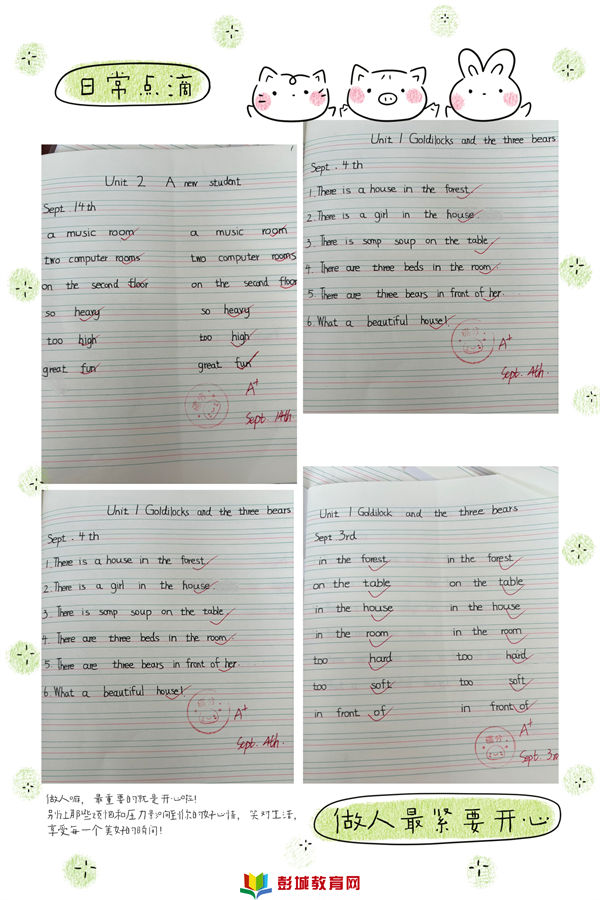 日常点滴
Unit 2 A new student
Sept. 14th
a music room a music room
two computer rooms two computer rooms
on the second floor on the second floor
so heavy so heavy
too high too high
great fun great fun
满分
A+
Sept. 14th
Unit 1 Goldilocks and the three bears
Sept. 4th
1. There is a house in the forest.
2. There is a girl in the house.
3. There is somp soup on the table.
4. There are three beds in the room.
5. There are three bears in front of her.
6. What a beautiful house!
满分
A+
Sept. 4th.
Unit 1 Goldilocks and the three bears
Sept. 4th
1. There is a house in the forest.
2. There is a girl in the house.
3. There is somp soup on the table.
4. There are three beds in the room.
5. There are three bears in front of her.
6. What a beautiful house!
满分
A+
Sept. 4th.
Unit 1 Goldilock and the three bears
Sept. 3rd
in the forest in the forest
on the table on the table
in the house in the house
in the room in the room
too hard too hard
too soft too soft
in front of in front of
满分
A+
Sept. 3rd
做人嘛，最重要的就是开心啦！
别让那些烦恼和压力影响到你的好心情，笑对生活，
享受每一个美好的瞬间！
做人最紧要开心
彭城教育网